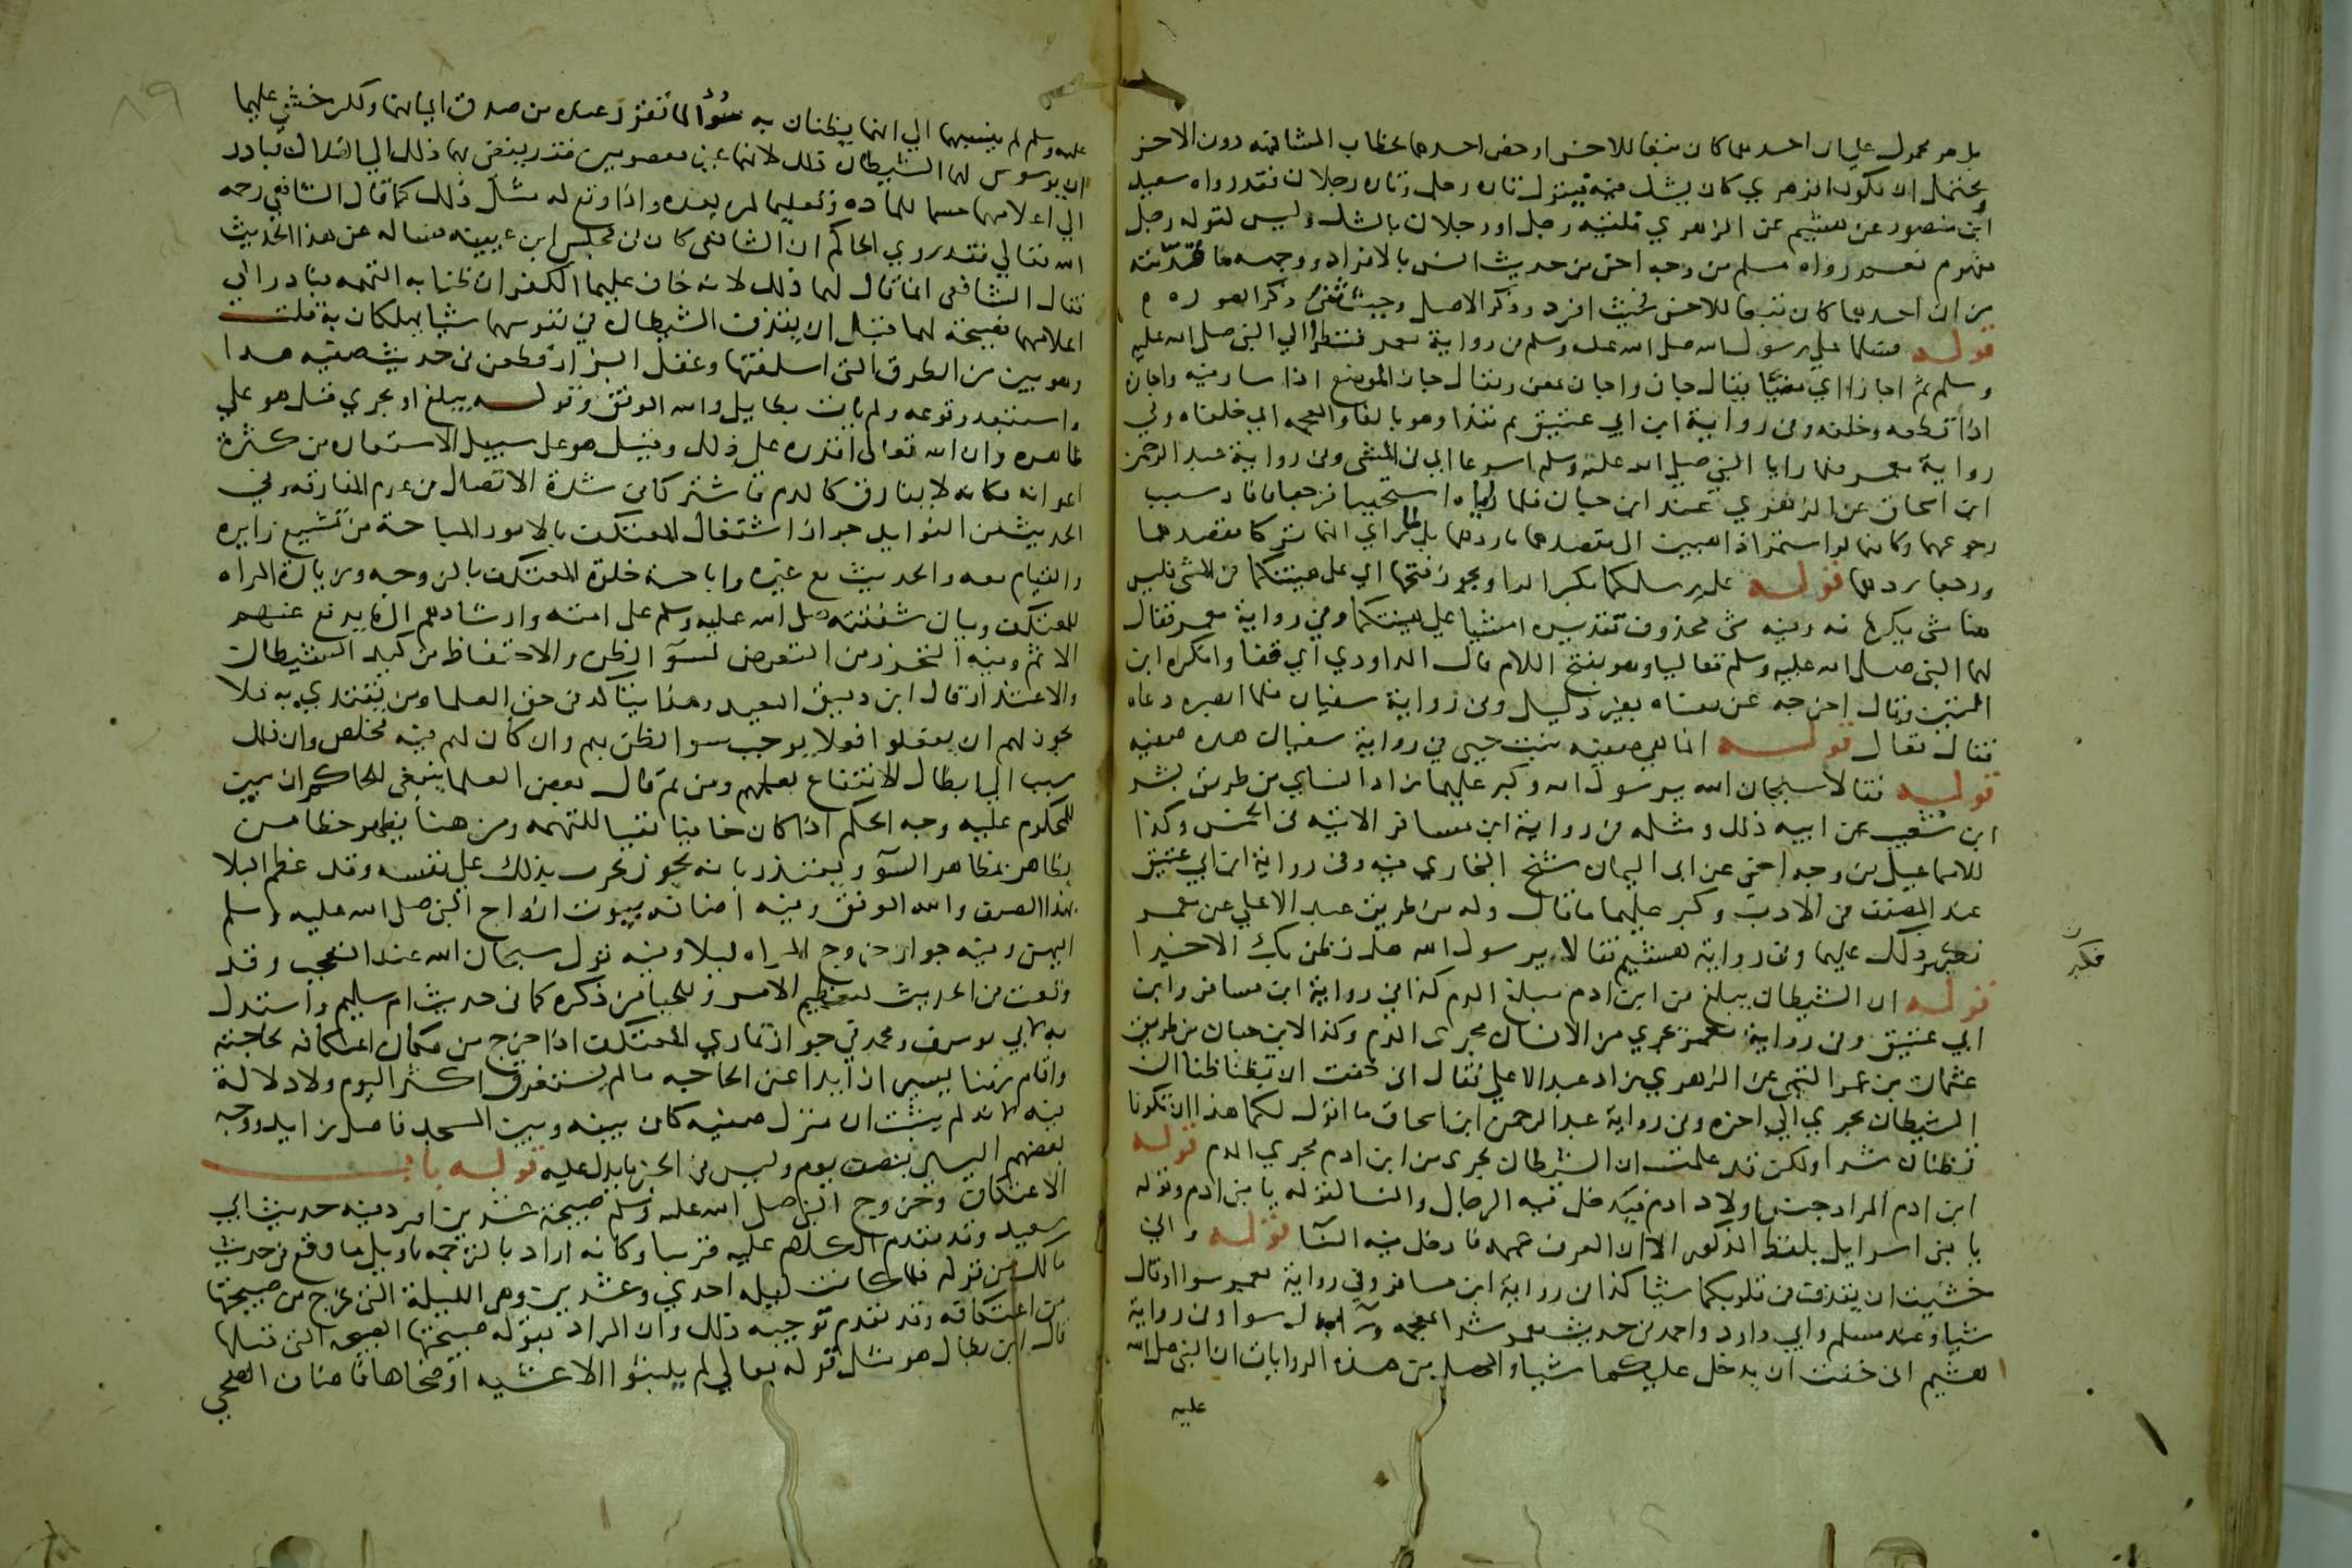 بل هو محمول على ان احدهما كان تبعا للاخر او خص احدهما بخطاب المشافهة دون الاخر
ويحتمل ان يكون الزهري كان يشك فيه فيقول تارة رجل وتارة رجلان فقد رواه سعيد
ابن منصور عن هشيم عن الزهري فلقيه رجل او رجلان بالشك وليس لقوله رجل
مفهوم نعم رواه مسلم من وجه اخر من حديث انس بالافراد ووجهه ما قدمته
من ان احدهما كان تبعا للاخر فحيث افرد ذكر الاصل وحيث ثنى ذكر الصورة
قوله فسلما على رسول الله صلى الله عليه وسلم في رواية معمر فنظرا الى النبي صلى الله عليه
وسلم ثم اجازا اي مضيا يقال جاز واجاز بمعنى ويقال جاز الموضع اذا سار فيه واجازه
اذا قطعه وخلفه وفي رواية ابن ابي عتيق ثم نفذا وهو بالفا والمعجمة اي خلفاه وفي
رواية معمر فلما رايا النبي صلى الله عليه وسلم اسرعا اي في المشي وفي رواية عبد الرحمن
ابن اسحاق عن الزهري عند ابن حبان فلما راياه استحييا فرجعا فافاد سبب
رجوعهما وكانهما لو استمرا ذاهبين الى مقصدهما ما ردهما بل لما راى انهما تركا مقصدهما
ورجعا ردهما قوله على رسلكما بكسر الرا ويجوز فتحها اي على هيئتكما في المشي فليس
هنا شي يكرهانه وفيه شي محذوف تقديره امشيا على هينتكما وفي رواية معمر فقال
لهما النبي صلى الله عليه وسلم تعاليا وهو بفتح اللام قال الداودي اي قفا وانكره ابن
التين وقال اخرجه عن معناه بغير دليل وفي رواية سفيان فلما ابصره دعاه
فقال تعال قوله انما هي صفية بنت حيي في رواية سفيان هذه صفية
قوله فقالا سبحان الله يرسول الله وكبر عليهما زاد النساي من طريق بشر
ابن شعيب عن ابيه ذلك ومثله في رواية ابن مسافر الاتية في الخمس وكذا
للاسماعيلي من وجه اخر عن ابي اليمان شيخ البخاري فيه وفي رواية ابن ابي عتيق
عند المصنف في الادب وكبر عليهما ما قال وله من طريق عبد الاعلى عن معمر
ذلك عليهما وفي رواية هشيم فقالا يرسول الله هل نظن بك الا خيرا
فكبر
قوله ان الشيطان يبلغ من ابن ادم مبلغ الدم كذا في رواية ابن مسافر وابن
ابي عتيق وفي رواية معمر يجري من الانسان مجرى الدم وكذا لابن حبان من طريق
عثمان بن عمر التيمي عن الزهري زاد عبد الاعلى فقال اني خفت ان تظنا ظنا ان
الشيطان يجري الى اخره وفي رواية عبد الرحمن ابن اسحاق ما اقول لكما هذا ان تكونا
تظنان شرا ولكن قد علمت ان الشيطان يجري من ابن ادم مجرى الدم قوله
ابن ادم المراد جنس اولاد ادم فيدخل فيه الرجال والنسا لقوله يا بني ادم وقوله
يا بني اسرايل بلفظ المذكور الا ان العرف عممه فادخل فيه النسا قوله واني
خشيت ان يقذف في قلوبكما شيا كذا في رواية ابن مسافر وفي رواية معمر سوا او قال
شيا وعند مسلم وابي داود واحمد من حديث معمر شرا بمعجمة ورا بدل سوا وفي رواية
هشيم اني خفت ان يدخل عليكما شيا والمحصل من هذه الروايات ان النبي صلى الله
عليه
٨٩
عليه وسلم لم ينسبهما الى انهما يظنان به سؤا لما تقرر عنده من صدق ايمانهما ولكن خشي عليهما
ان يوسوس لهما الشيطان ذلك لانهما غير معصومين فقد يفضي بهما ذلك الى الهلاك فبادر
الى اعلامهما حسما للمادة وتعليما لمن بعده اذا وقع له مثل ذلك كما قال الشافعي رحمه
الله تعالى فقد روى الحاكم ان الشافعي كان في مجلس ابن عيينة فساله عن هذا الحديث
فقال الشافعي انما قال لهما ذلك لانه خاف عليهما الكفر ان ظنا به التهمة فبادر الى
اعلامهما نصيحة لهما قبل ان يقذف الشيطان في نفوسهما شيا يهلكان به قلت
وهو بين من الطرق التي اسلفتها وغفل البزار فطعن في حديث صفية هذا
واستبعد وقوعه ولم يات بطايل والله الموفق وقوله يبلغ او يجري قيل هو على
ظاهره وان الله تعالى اقدره على ذلك وقيل هو على سبيل الاستعارة من كثرة
اغوائه وكانه لا يفارق كالدم فاشتركا في شدة الاتصال وعدم المفارقة وفي
الحديث من الفوايد جواز اشتغال المعتكف بالامور المباحة من تشييع زايره
والقيام معه والحديث مع غيره واباحة خلوة المعتكف بالزوجة وزيارة المراة
للمعتكف وبيان شفقته صلى الله عليه وسلم على امته وارشادهم الى ما يدفع عنهم
الاثم وفيه التحرز من التعرض لسو الظن والاحتفاظ من كيد الشيطان
والاعتذار قال ابن دقيق العيد وهذا متاكد في حق العلما ومن يقتدي به فلا
يجوز لهم ان يفعلوا فعلا يوجب سو الظن بهم وان كان لهم فيه مخلص لان ذلك
سبب الى ابطال الانتفاع بعلمهم ومن ثم قال بعض العلما ينبغي للحاكم ان يبين
للمحكوم عليه وجه الحكم اذا كان خافيا نفيا للتهمة ومن هنا يظهر خطا من
يتظاهر بمظاهر السو ويعتذر بانه يجرب بذلك على نفسه وقد عظم البلا
بهذا الصنف والله الموفق وفيه اضافة بيوت ازواج النبي صلى الله عليه وسلم
اليهن وفيه جواز خروج المراة ليلا وفيه قول سبحان الله عند التعجب وقد
وقعت في الحديث لتعظيم الامر وللحيا من ذكره كما في حديث ام سليم واستدل
به لابي يوسف ومحمد في جواز تمادي المعتكف اذا خرج من مكان اعتكافه لحاجته
واقام زمنا يسيرا زايدا عن الحاجة ما لم يستغرق اكثر اليوم ولا دلالة
فيه لانه لم يثبت ان منزل صفية كان بينه وبين المسجد فاصل زايد وحد
بعضهم اليسير بنصف يوم وليس في الخبر ما يدل عليه قوله باب
الاعتكاف وخروج النبي صلى الله عليه وسلم صبيحة عشرين اورد فيه حديث ابي
سعيد وقد تقدم الكلام عليه قريبا وكانه اراد بالترجمة تاويل ما وقع في حديث
مالك من قوله فلما كانت ليلة احدى وعشرين وهي الليلة التي يخرج من صبيحتها
من اعتكافه وقد تقدم توجيه ذلك وان المراد بقوله صبيحتها الصبيحة التي قبلها
قال ابن بطال هو مثل قوله تعالى لم يلبثوا الا عشية او ضحاها فاضاف الضحى